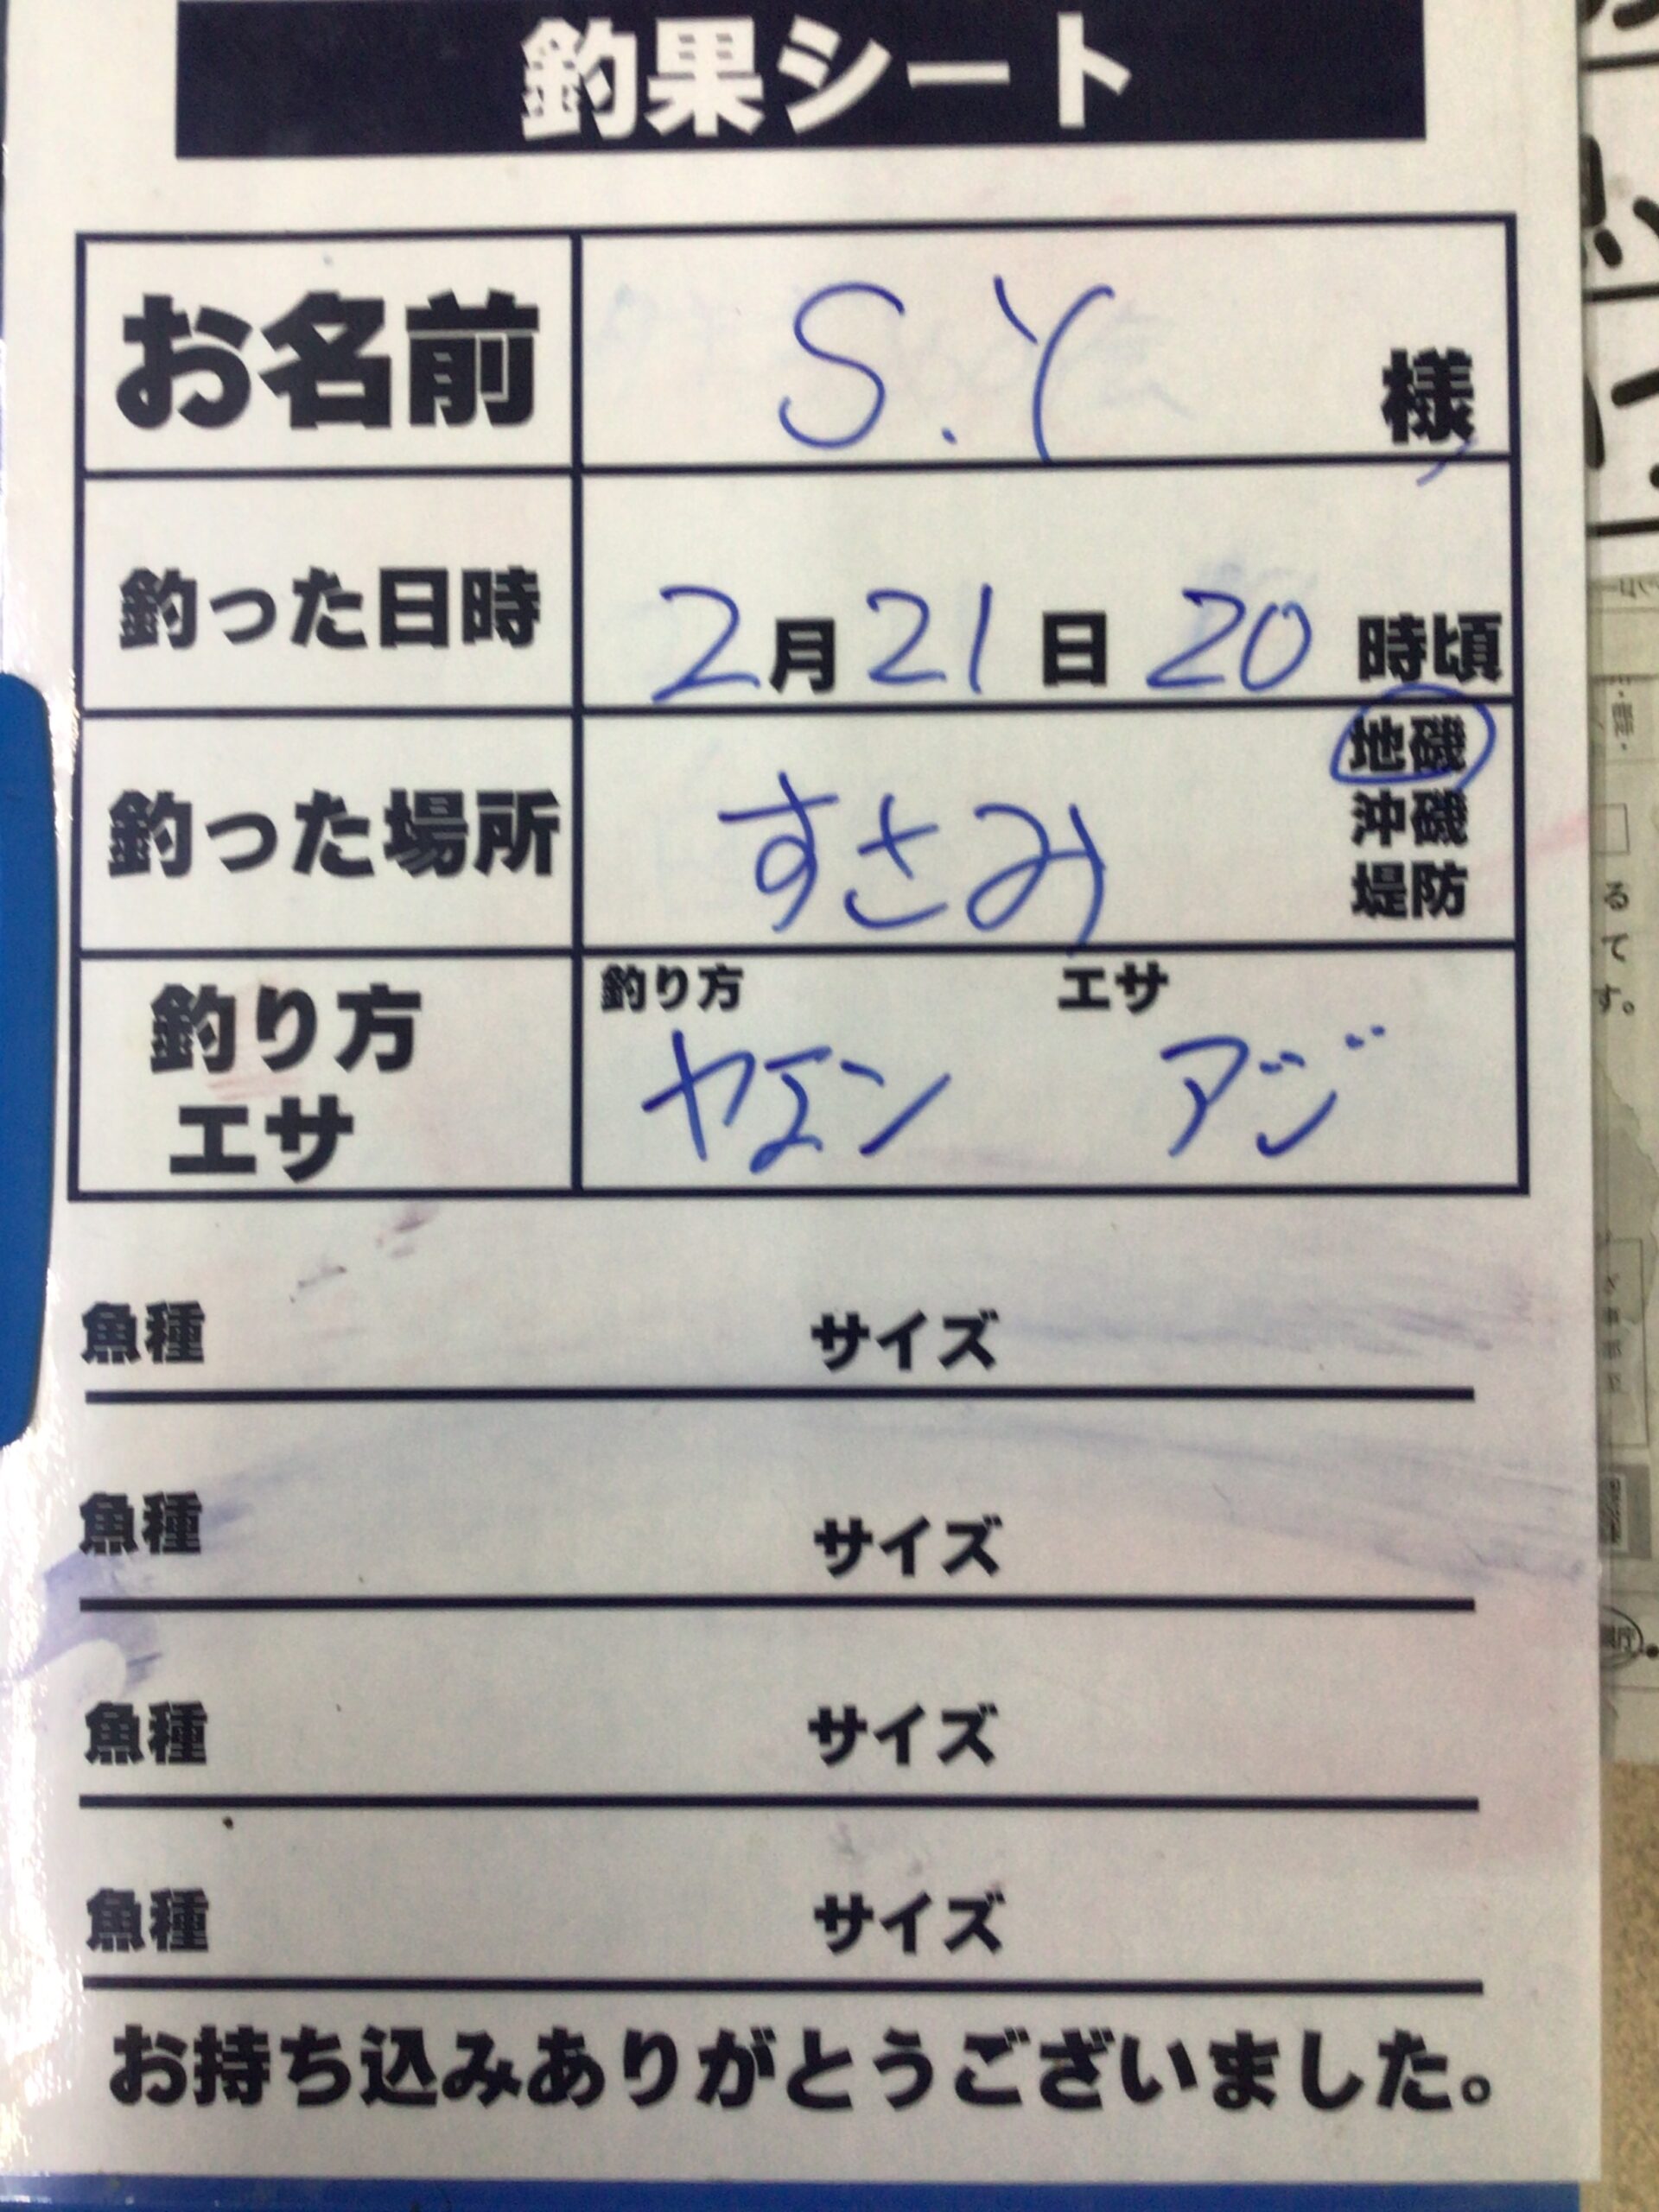 釣果シート
お名前 S.Y 様
釣った日時 2月21日20時頃
釣った場所 すさみ 地磯
沖磯
堤防
釣り方 エサ
釣り方 ヤエン アジ
エサ
魚種 サイズ
魚種 サイズ
魚種 サイズ
魚種 サイズ
お持ち込みありがとうございました。
る
て
す。